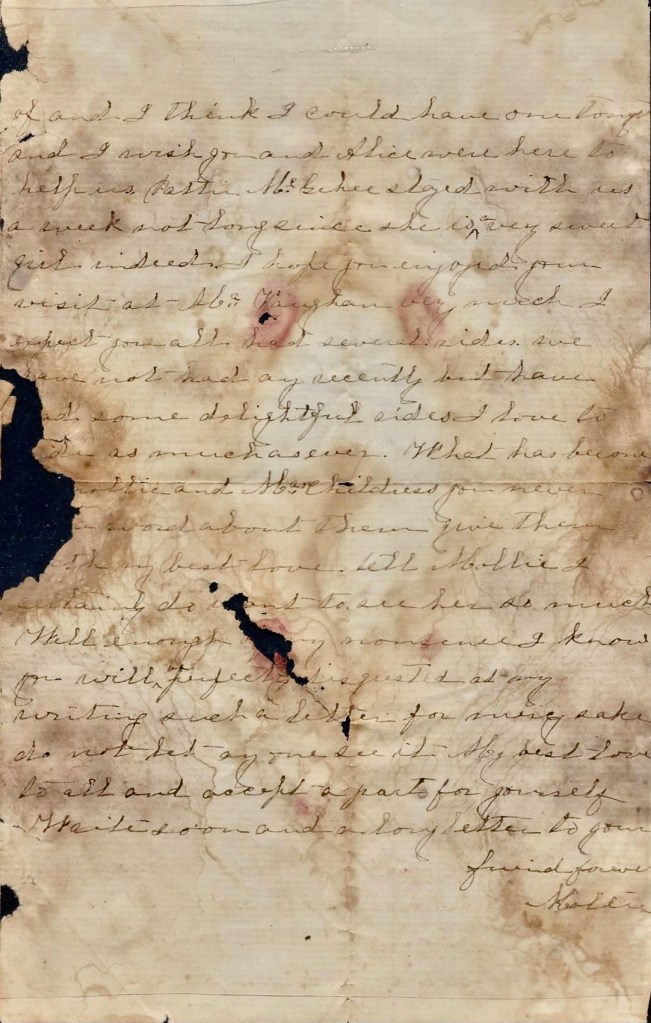 of and I think I could have one too
and I wish you and Alice were here to
help us. Pattie McGehee stayed with us
a week not long since she is a very sweet
girl indeed. I hope you enjoyed your
visit at Mr. Vaughan very much I
expect you all had several rides. we
have not had any recently but have
had some delightful rides I love to
ride as much as ever. What has become
Mollie and Mr. Childress you never
a word about them give them
both my best love. tell Mollie I
certainly do want to see her so much
Well enough of my nonsense I know
you will perfectly disgusted at my
writing such a letter for mercy sake
do not let any one see it My best love
to all and accept a part for yourself
Write soon and a long letter to your
friend forever
Mollie